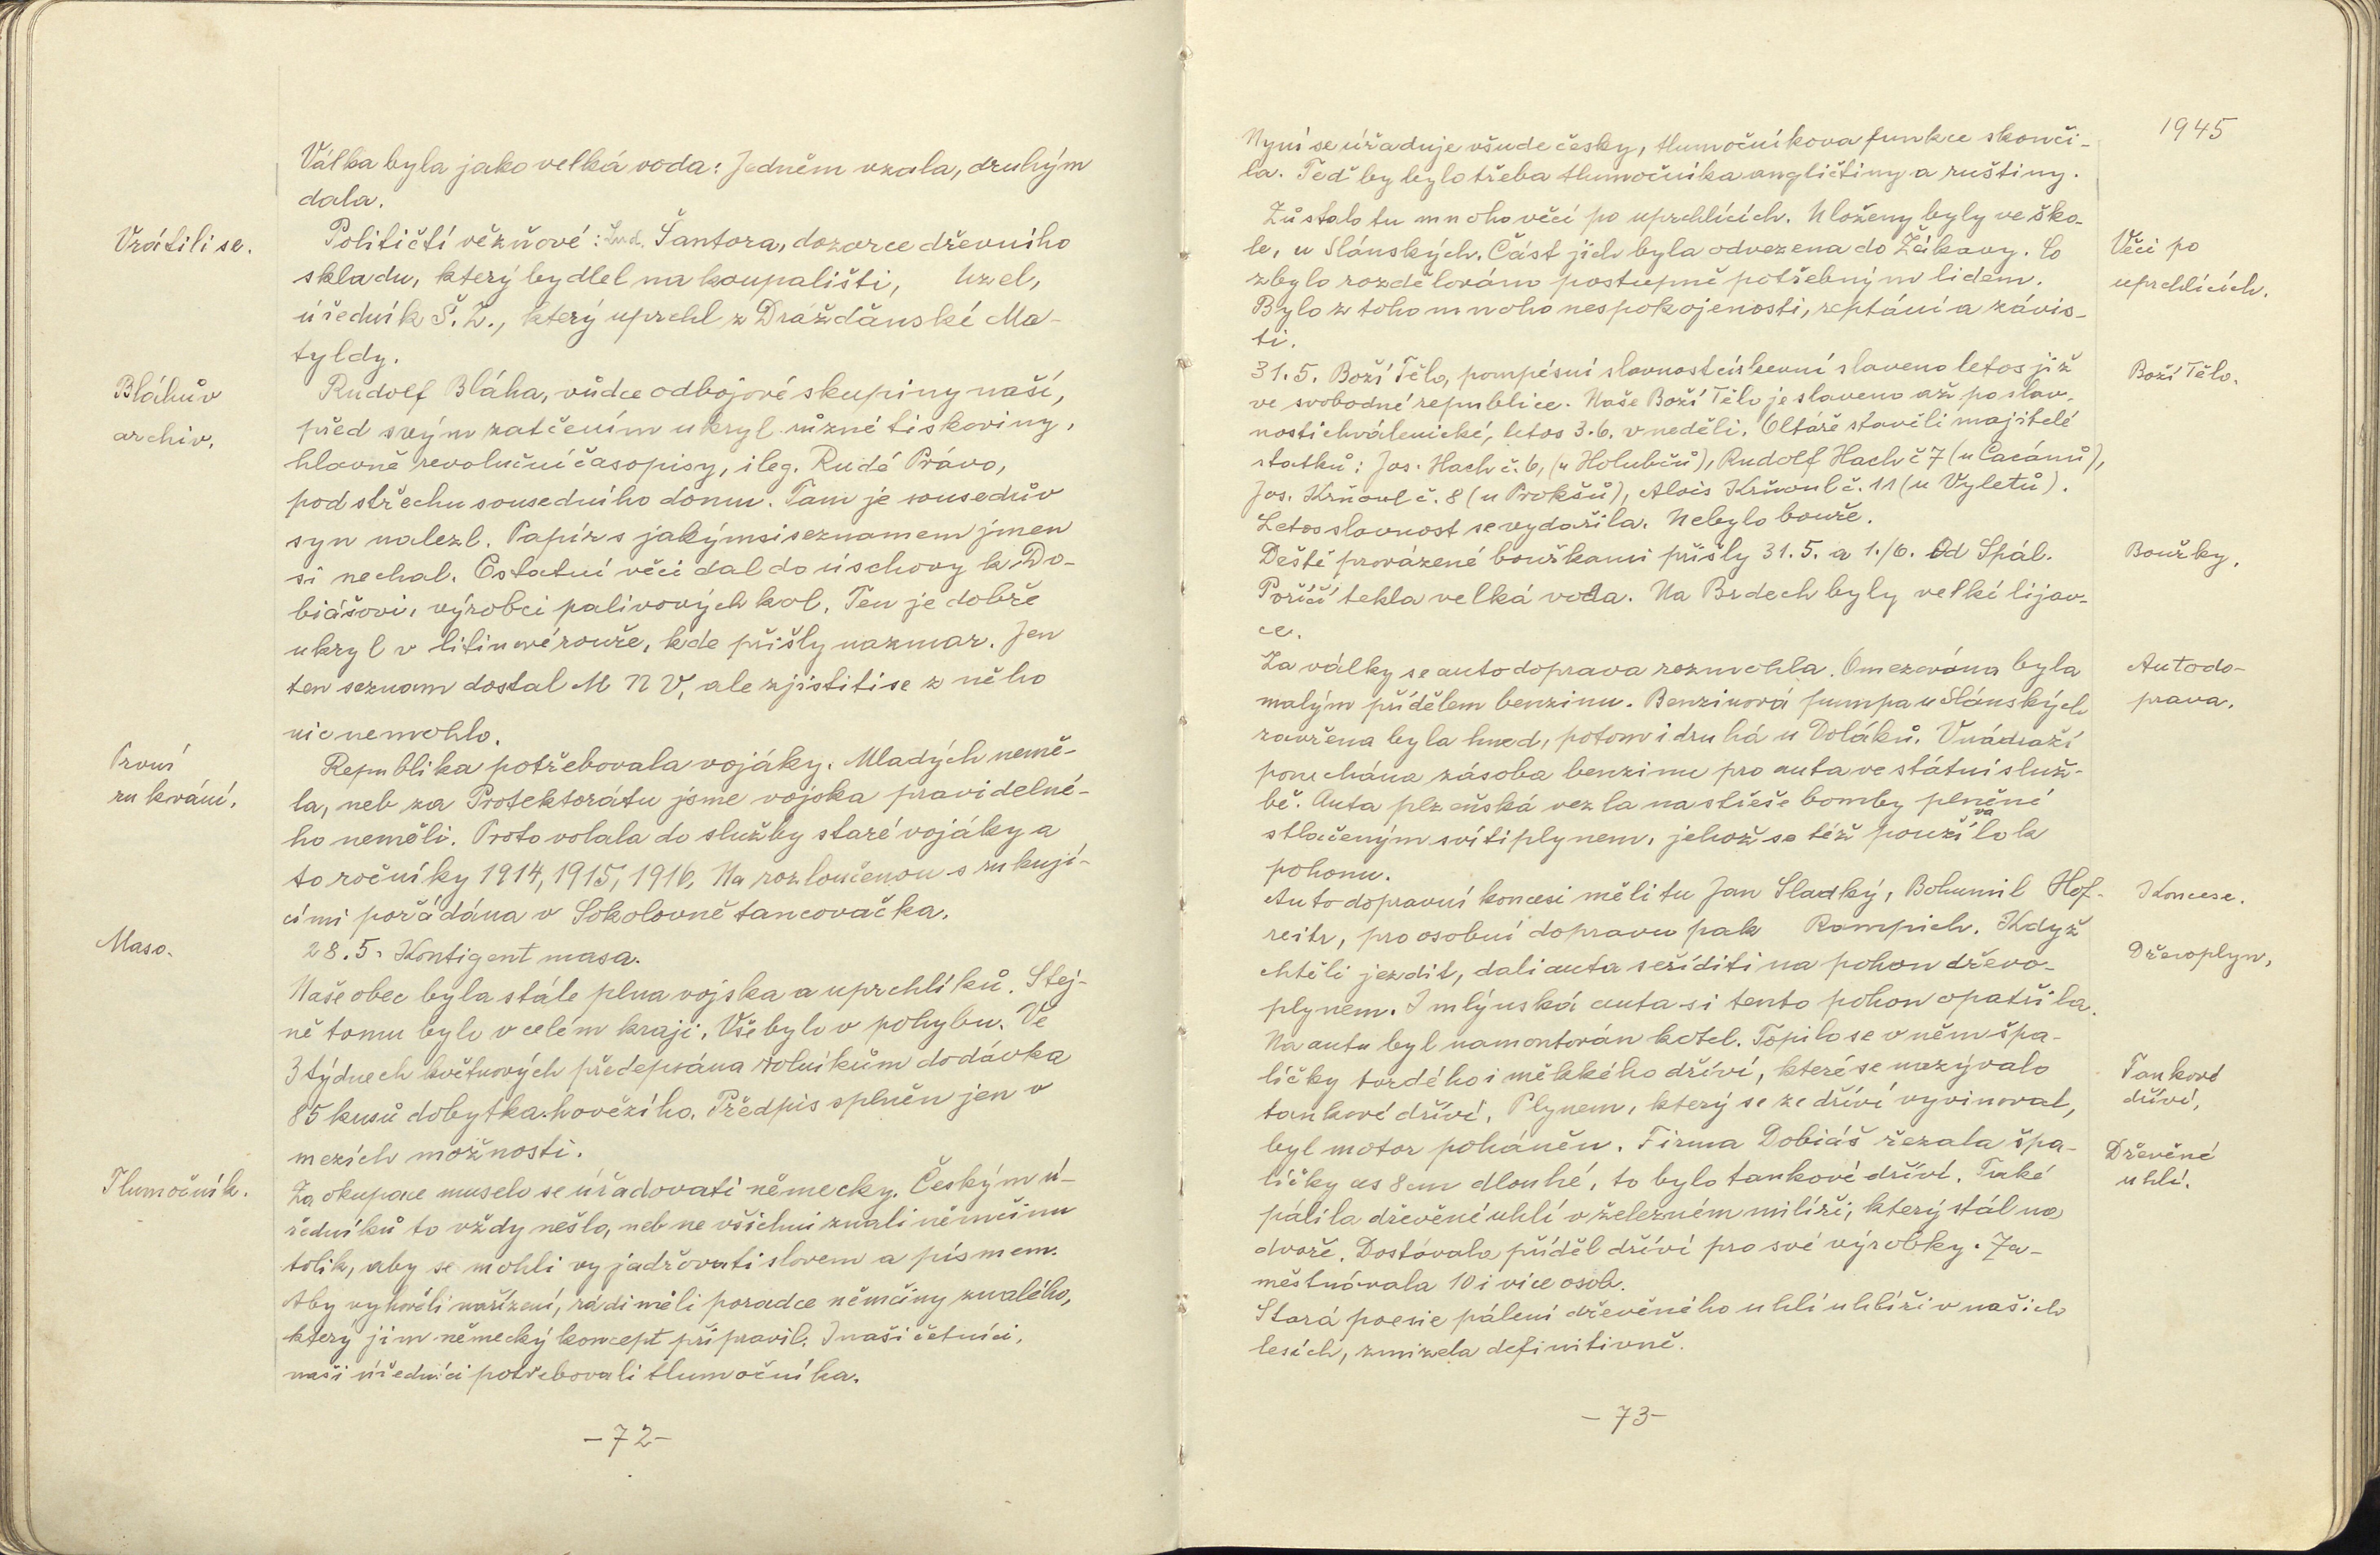 Válka byla jako velká voda: Jedněm vzala, druhým
dala.
Vrátili se.
Političtí vězňové: Lud. Šantora, dozorce dřevního
skladu, který bydlel na koupališti, Uzel,
úředník Š. Z., který uprchl z Dráždǎnské Ma-
tyldy.
Bláhův
archiv.
Rudolf Bláha, vůdce odbojové skupiny naší,
před svým zatčením ukryl různé tiskoviny,
hlavně revoluční časopisy, ileg. Rudé Právo,
pod střechu sousedního domu. Tam je sousedův
syn nalezl. Papír s jakýmsi seznamem jmen
si nechal. Ostatní věci dal do úschovy k Do-
biášovi, výrobci palivových kol. Ten je dobře
ukryl v litinové rouře, kde přišly nazmar. Jen
ten seznam dostal M N V, ale zjistiti se z něho
nic nemohlo.
První
rukování.
Republika potřebovala vojáky. Mladých nemě-
la, neb za Protektorátu jsme vojska pravidelné-
ho neměli. Proto volala do služby staré vojáky a
to ročníky 1914, 1915, 1916. Na rozloučenou s rukují-
cími pořádána v Sokolovně tancovačka.
Maso.
28.5. Kontigent masa.
Naše obec byla stále plna vojska a uprchlíků. Stej-
ně tomu bylo v celém kraji. Vše bylo v pohybu. Ve
3 týdnech květnových předepsána rolníkům dodávka
85 kusů dobytka hovězího. Předpis splněn jen v
mezích možnosti.
Tlumočník.
Za okupace muselo se úřadovati německy. Českým ú-
ředníků to vždy nešlo, neb ne všichni znali němčinu
tolik, aby se mohli vyjadřovati slovem a písmem.
Aby vyhověli nařízení, rádi měli poradce němčiny znalého,
který jim německý koncept připravil. I naši četníci,
naši úředníci potřebovali tlumočníka.
- 72 -
1945
Nyní se úřaduje všude česky, tlumočníkova funkce skonči-
la. Teď by bylo třeba tlumočníka angličtiny a ruštiny.
Zůstalo tu mnoho věcí po uprchlících. Uloženy byly ve ško-
le, u Slánských. Část jich byla odvezena do Žákavy. Co
zbylo rozdělováno postupně potřebným lidem.
Bylo z toho mnoho nespokojenosti, reptání a závis-
ti.
Věci po
uprchlících.
31.5. Boží Tělo, pompésní slavnost církevní slaveno letos již
ve svobodné republice. Naše Boží Tělo je slaveno až po slav-
nosti chválenické, letos 3.6. v neděli. Oltáře stavěli majitelé
statků: Jos. Hach č. 6, (u Holubčů), Rudolf Hach č 7 (u Cacánů),
Jos. Krňoul č. 8 (u Prokšů), Alois Krňoul č. 11 (u Vyletů).
Letos slavnost se vydařila. Nebylo bouře.
Boží Tělo.
Deště provázené bouřkami přišly 31.5. a 1./6. Od Spál.
Poříčí tekla velká voda. Na Brdech byly velké lijav-
ce.
Bouřky.
Za války se autodoprava rozmohla. Omezována byla
malým přídělem benzinu. Benzinová pumpa u Slánských
zavřena byla hned, potom i druhá u Doláků. V nádraží
ponechána zásoba benzinu pro auta ve státní služ-
bě. Auta plzeňská vezla na střeše bomby plněné
stlačeným svítiplynem, jehož se též používalo k
pohonu.
Autodo-
prava.
Autodopravní koncesi měli tu Jan Sladký, Bohumil Hof-
reitr, pro osobní dopravu pak Rampich. Když
chtěli jezdit, dali auta seříditi na pohon dřevo-
plynem. I mlýnská auta si tento pohon opatřila.
Na auta byl namontován kotel. Topilo se v něm špa-
líčky tvrdého i měkkého dříví, které se nazývalo
tankové dříví. Plynem, který se ze dříví vyvinoval,
byl motor poháněn. Firma Dobiáš řezala špa-
líčky as 8 cm dlouhé, to bylo tankové dříví. Také
pálila dřevěné uhlí v železném milíři, který stál na
dvoře. Dostávala příděl dříví pro své výrobky. Za-
městnávala 10 i více osob.
Stará poesie pálení dřevěného uhlí uhlíři v našich
lesích, zmizela definitivně.
Koncese.
Dřevoplyn.
Tankové
dříví.
Dřevěné
uhlí.
- 73 -